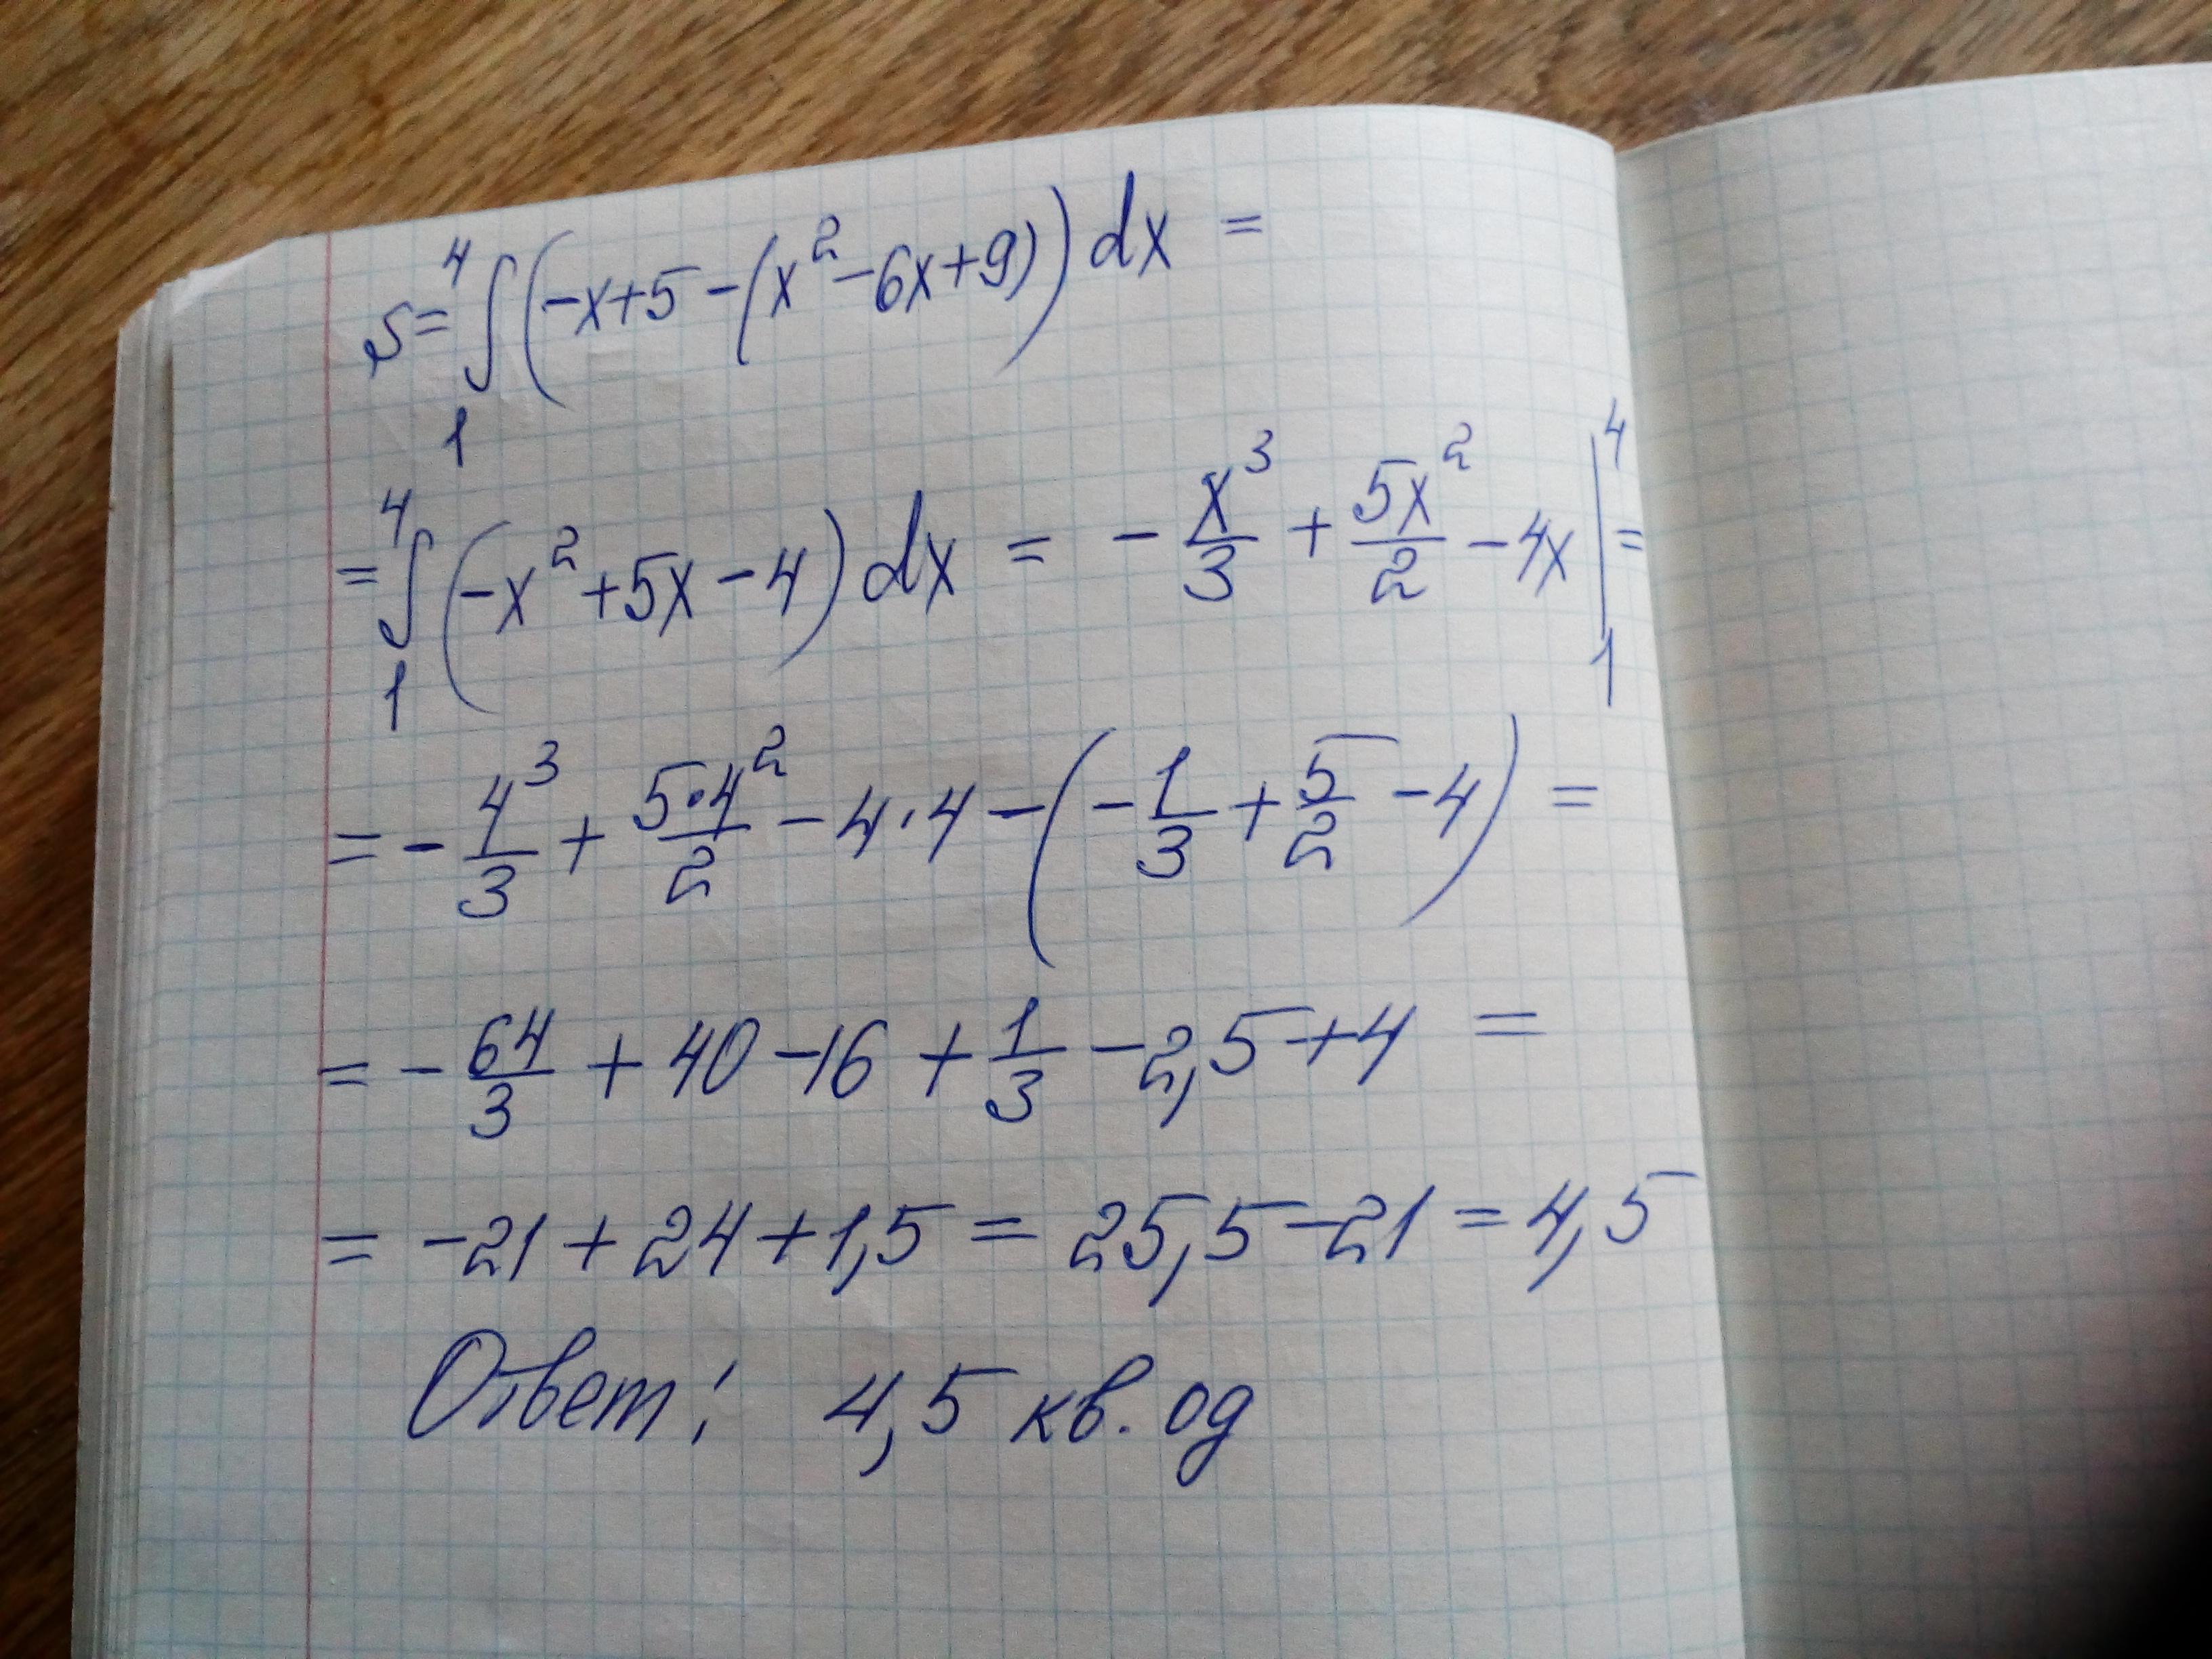 S = ∫₁⁴ (-x+5-(x²-6x+9)) dx =
= ∫₁⁴ (-x²+5x-4) dx = - x³/3 + 5x²/2 - 4x |₁⁴ =
= - 4³/3 + 5·4²/2 - 4·4 - (- 1/3 + 5/2 - 4) =
= - 64/3 + 40 - 16 + 1/3 - 2,5 + 4 =
= -21 + 24 + 1,5 = 25,5 - 21 = 4,5
Ответ: 4,5 кв. од